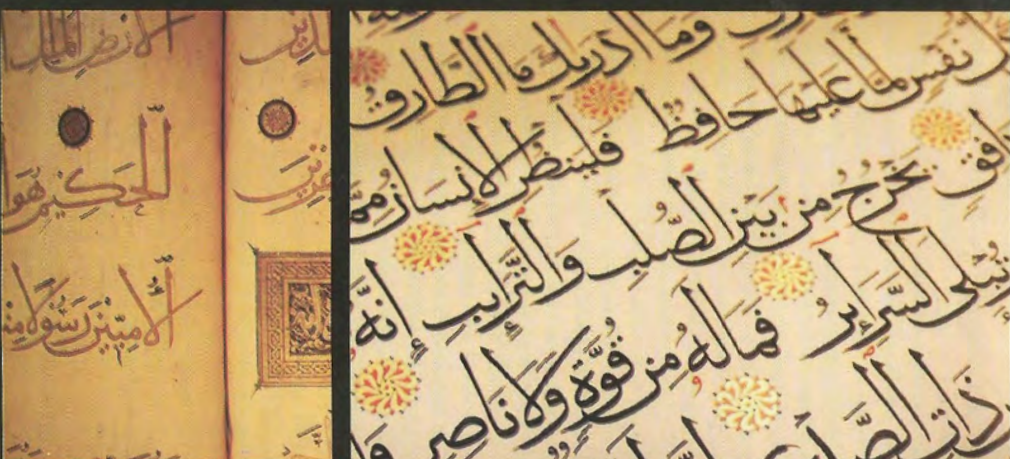 الْأَرْضِ الْمَلِكِ
الْحَكِيمِ هُوَ ا
الْأُمِّيِّينَ رَسُولًا مِنْ
وَمَا أَدْرَيكَ مَا الطَّارِقُ
نَفْسٍ لَمَّا عَلَيْهَا حَافِظٌ فَلْيَنْظُرِ الْإِنْسَانُ مِمَّ
افِقٍ يَخْرُجُ مِنْ بَيْنِ الصُّلْبِ وَالتَّرَايِبِ إِنَّهُ
تُبْلَى السَّرَايِرُ فَمَالَهُ مِنْ قُوَّةٍ وَلَا نَاصِرٍ وَا
ذَاتِ